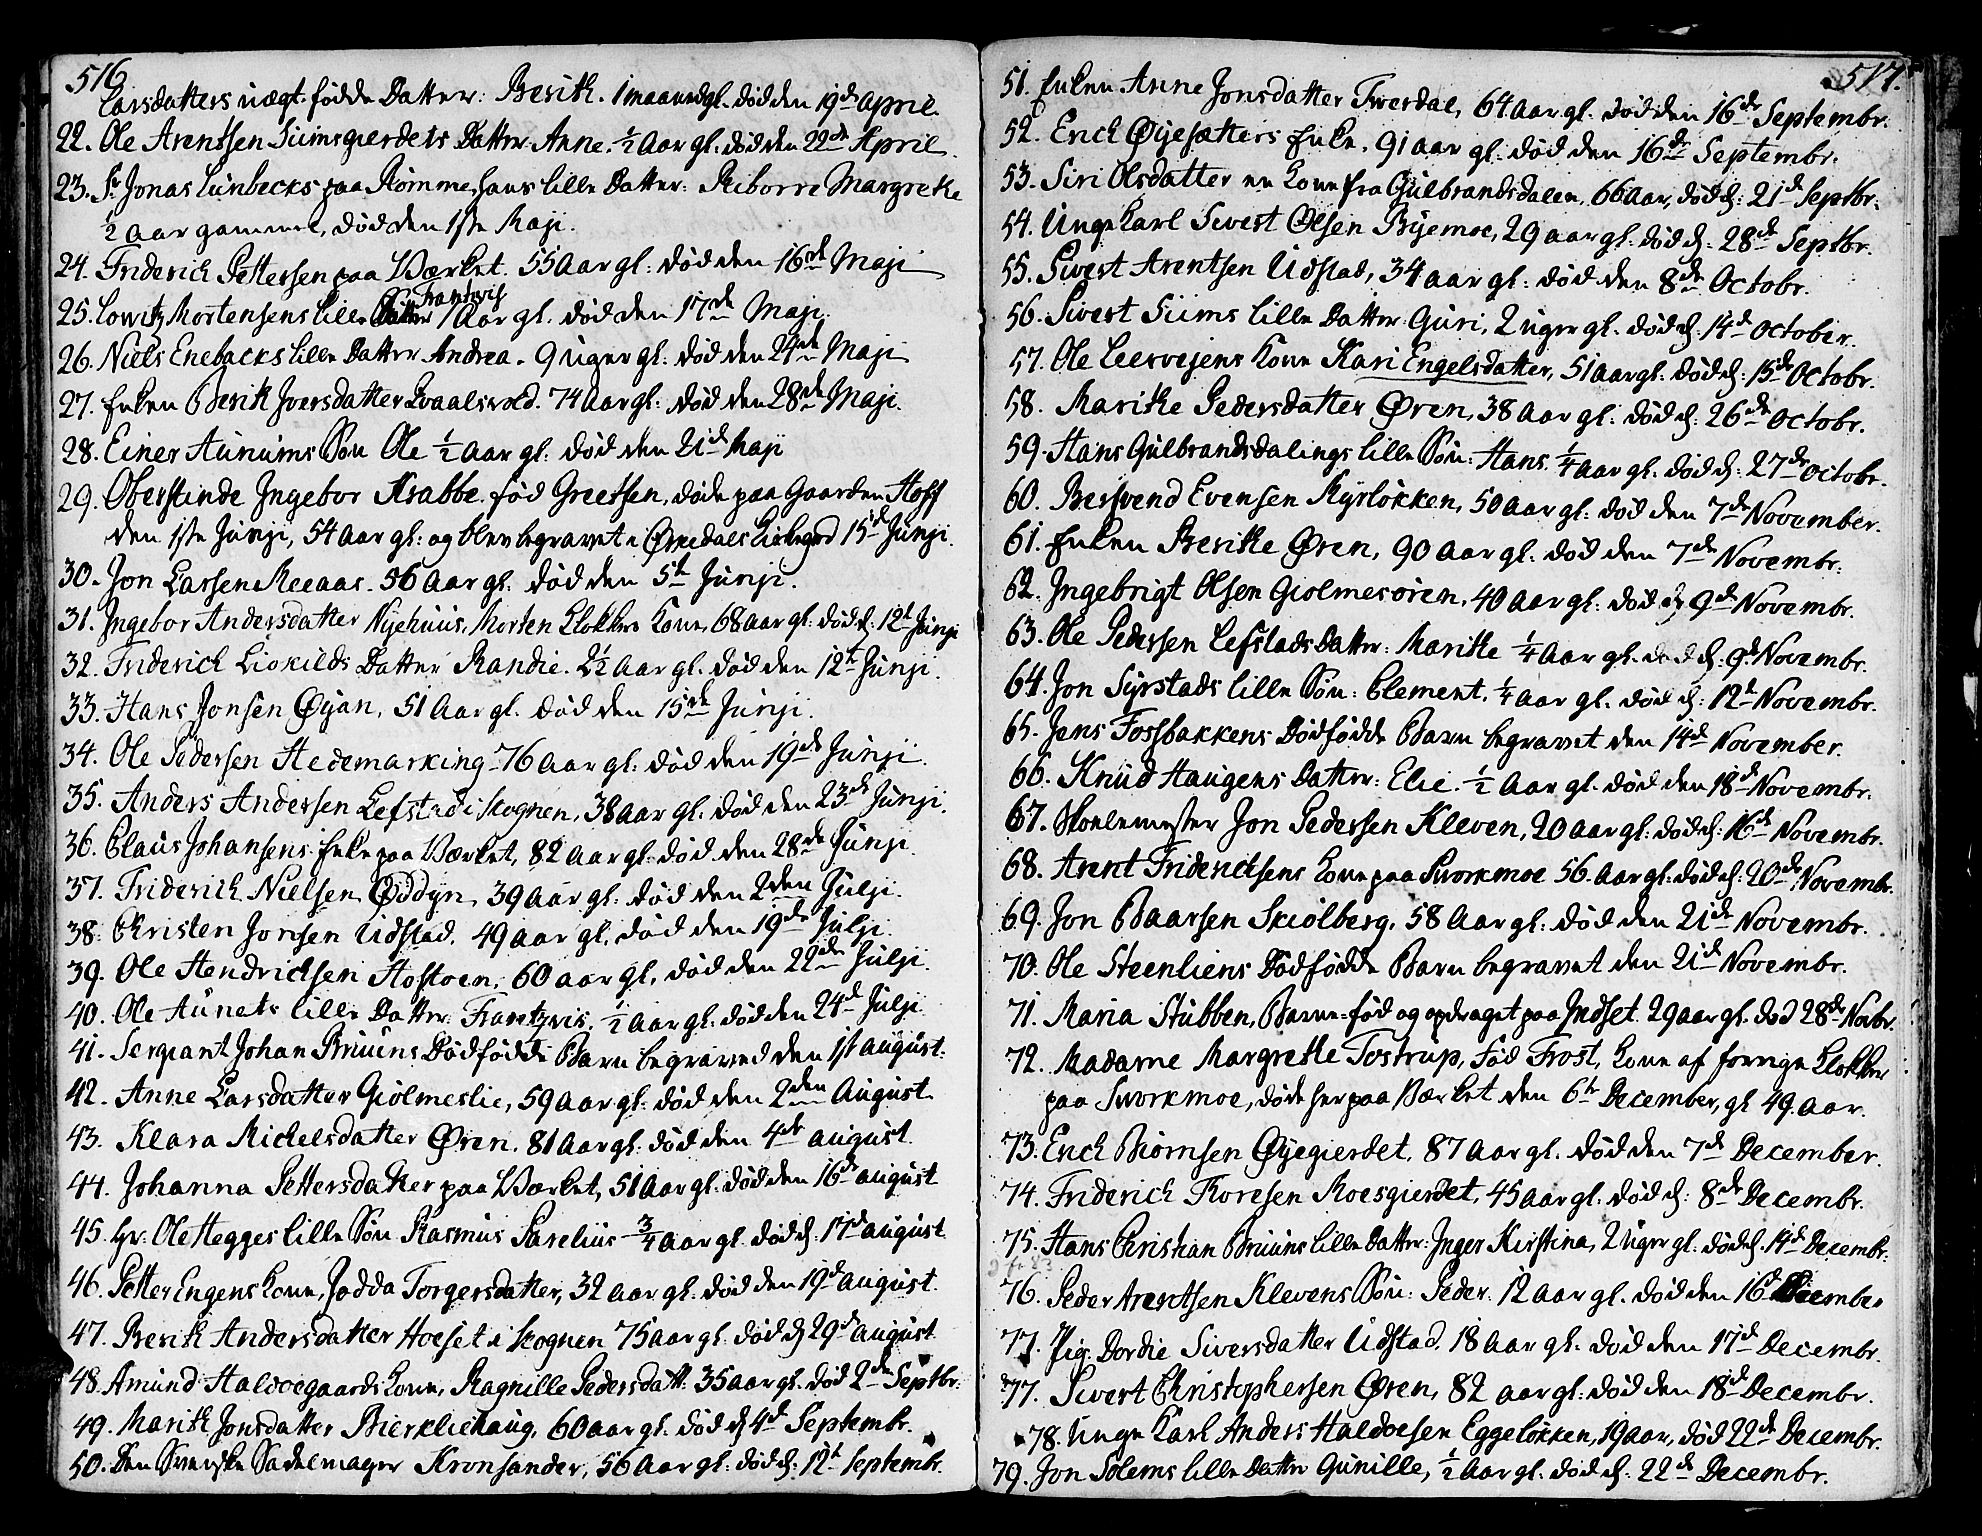 516
Larsdatters uægt. fødde Datter: Berith. 1 maanedgl. død den 19de April.
22. Ole Arentsen Siimsgierdets Datter Anne. ½ Aar gl. død den 22de April.
23. Sr Jonas Lunbecks paa Rømme, hans lille Datter: Riborre Margrethe
½ Aar gammel, død den 1ste Maji.
24. Friderich Pettersen paa Værket. 55 Aar gl: død den 16de Maji
Frantzvis
25. Lowitz Mortensens lille Datter 1 Aar gl. død den 17de Maji.
26. Niels Enebacks lille Datter Andrea. 9 uger gl: død den 27de Maji
27. Enken Berith Joersdatter Qvaalsvold. 74 Aar gl: død den 28de Maji.
28. Einer Aunums Søn Ole ½ Aar gl: død den 21de Maji
29. Oberstinde Ingebor Krabbe. fød Greetsen, døde paa Gaarden Hoff
den 1ste Junji, 54 Aar gl: og blev begravet i Ørkedals Kirkegrd 15de Junji.
30. Jon Larsen Reeaas. 56 Aar gl. død den 5te Junji.
31. Ingebor Andersdatter Nyehuus, Morten Klokkers Kone, 68 aar gl: død d: 12te Junji
32. Friderich Liokilds Datter Randie. 2½ Aar gl. død den 12te Junji.
33. Hans Jonsen Øyan, 51 Aar gl. død den 15de Junji.
34. Ole Pedersen Hedemarking 76 Aar gl: død den 19de Junji.
35. Anders Andersen Lefstad i Skognen, 38 Aar gl. død den 23de Junji.
36. Claus Johansens Enke paa Værket, 82 Aar gl. død den 28de Junji.
37. Friderich Nielsen Øddyn 39 Aar gl: død den 2den Julji.
38. Christen Jonsen Udstad. 49 Aar gl. død den 19de Julji.
39. Ole Hendrichsen Hostoen, 60 Aar gl. død den 22de Julji.
40. Ole Aunets lille Datter Frantzvis. ½ Aar gl: død den 24de Julji
41. Sergiant Johan Bruuns Dødfødde Barn begraved den 1st august.
42. Anne Larsdatter Giølmeslie, 59 Aar gl: død den 2den August.
43. Klara Michelsdatter Øren. 81 Aar gl: død den 4de august
44. Johanna Pettersdatter paa Værket, 51 Aar gl. død den 16de august
45. Hr. Ole Hegges lille Søn Rasmus Parelius ¾ Aar gl. død d: 17de august
46. Petter Engens Kone, Jodda Torgersdatter, 32 Aar gl. død den 19de august.
47. Berith Andersdatter Hoeset i Skognen 75 Aar gl. død d: 29de august
48. Amund Haldoegaards Kone, Ragnille Pedersdatt: 35 aar gl. død 2den Septbr:
49. Marith Jonsdatter Bierkliehaug, 60 Aar gl. død d: 4de Septembr.
50. Den Svenske Sadelmager Kronsander, 56 Aar gl: død d: 12te Septembr.
517.
51. Enken Anne Jonsdatter Tverdal, 64 Aar gl. død den 16de Septembr.
52. Erich Øyesætters Enke, 91 aar gl: død den 16de Septembr.
53. Siri Olsdatter en Kone fra Gulbrandsdalen, 66 Aar, død d: 21de Septbr.
54. Unge Karl Sivert Olsen Byemoe, 29 aar gl: død d: 28de Septbr.
55. Sivert Arentsen Udstad, 34 Aar gl: død den 8de Octobr.
56. Sivert Siims lille Datter Guri, 2 uger gl. død d: 14de October.
57. Ole Leervejens Kone Kari Engelsdatter, 51 Aar gl: død d: 15de Octobr.
58. Marithe Pedersdatter Øren, 38 Aar gl: død d: 26de octobr.
59. Hans Gulbrandsdalings lille Søn: Hans ¼ Aar gl: død d: 27de octobr.
60. Bersvend Evensen Kyrløkken, 50 Aar gl: død den 7de November.
61. Enken Berithe Øren, 90 Aar gl. død den 7de Novembr:
62. Ingebrigt Olsen Giolmesøren, 40 Aar gl: død d: 9de Novembr.
63. Ole Pedersen Lefstads Datter: Marithe ¼ Aar gl. død d: 9de Novembr.
64. Jon Syrstads lille Søn: Clement, ¼ Aar gl. død d: 12te Novembr.
65. Jens Fossbakkens Dødfødde Barn begravet den 14de November.
66. Knud Haugens Datter: Elie. ½ Aar gl. død den 18de Novembr.
67. Skolemester Jon Pedersen Kleven, 20 Aar gl: død d: 16de Novembr.
68. Arent Fridericksens Kone paa Svorkmoe 56. Aar gl: død d: 20de Novembr.
69. Jon Baarsen Skiølberg, 58 Aar gl: død den 21de Novembr.
70. Ole Steenliens Dødfødde Barn begravet den 21de Novembr.
71. Maria Stubben, Barne-fød og opdraget paa Indset. 29 aar gl. død 28de Novbr.
72. Madame Margrethe Tostrup, fød Frost, Kone af forrige Klokker
paa Svorkmoe, døde her paa Værket den 6te December, gl 49. Aar.
73. Erich Biørnsen Øyegierdet, 87 Aar gl. død den 7de December.
74. Friderich Thoresen Moesgierdet, 45 Aar gl: død d: 8de Decembr.
75. Hans Christian Bruuns lille Datter: Inger Kirstina, 2 Uger gl: død d: 14de Decembr.
76. Peder Arentsen Klevens Søn: Peder. 12 Aar gl. død den 16de December
77. Pig. Dordie Siversdatter Udstad, 18 Aar gl: død den 17de Decembr.
77. Sivert Christophersen Øren, 82 aar gl: død den 18de Decembr.
78. Unge Karl Anders Haldoesen Eggeløkken, 19 aar, død 22de Decembr.
79. Jon Solems lille Datter Gunille, ½ Aar gl: død d: 22de Decembr.